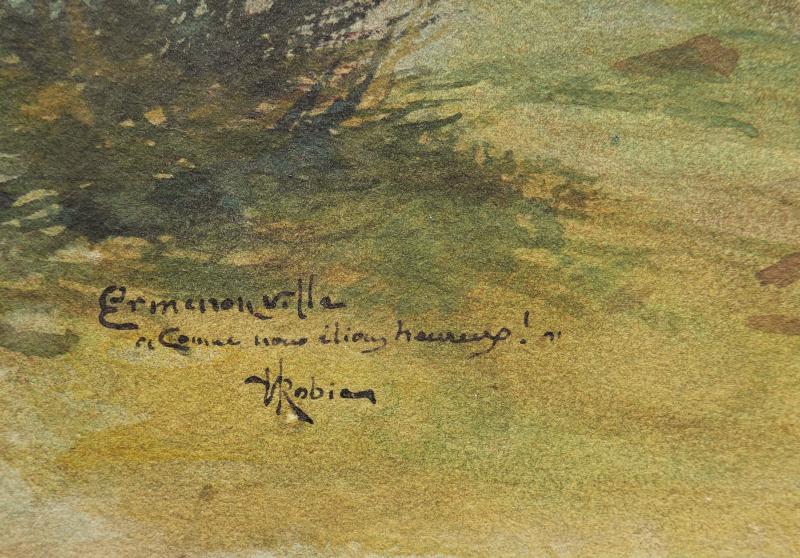 Ermenonville
"Comme nous étions heureux!"
VRobien